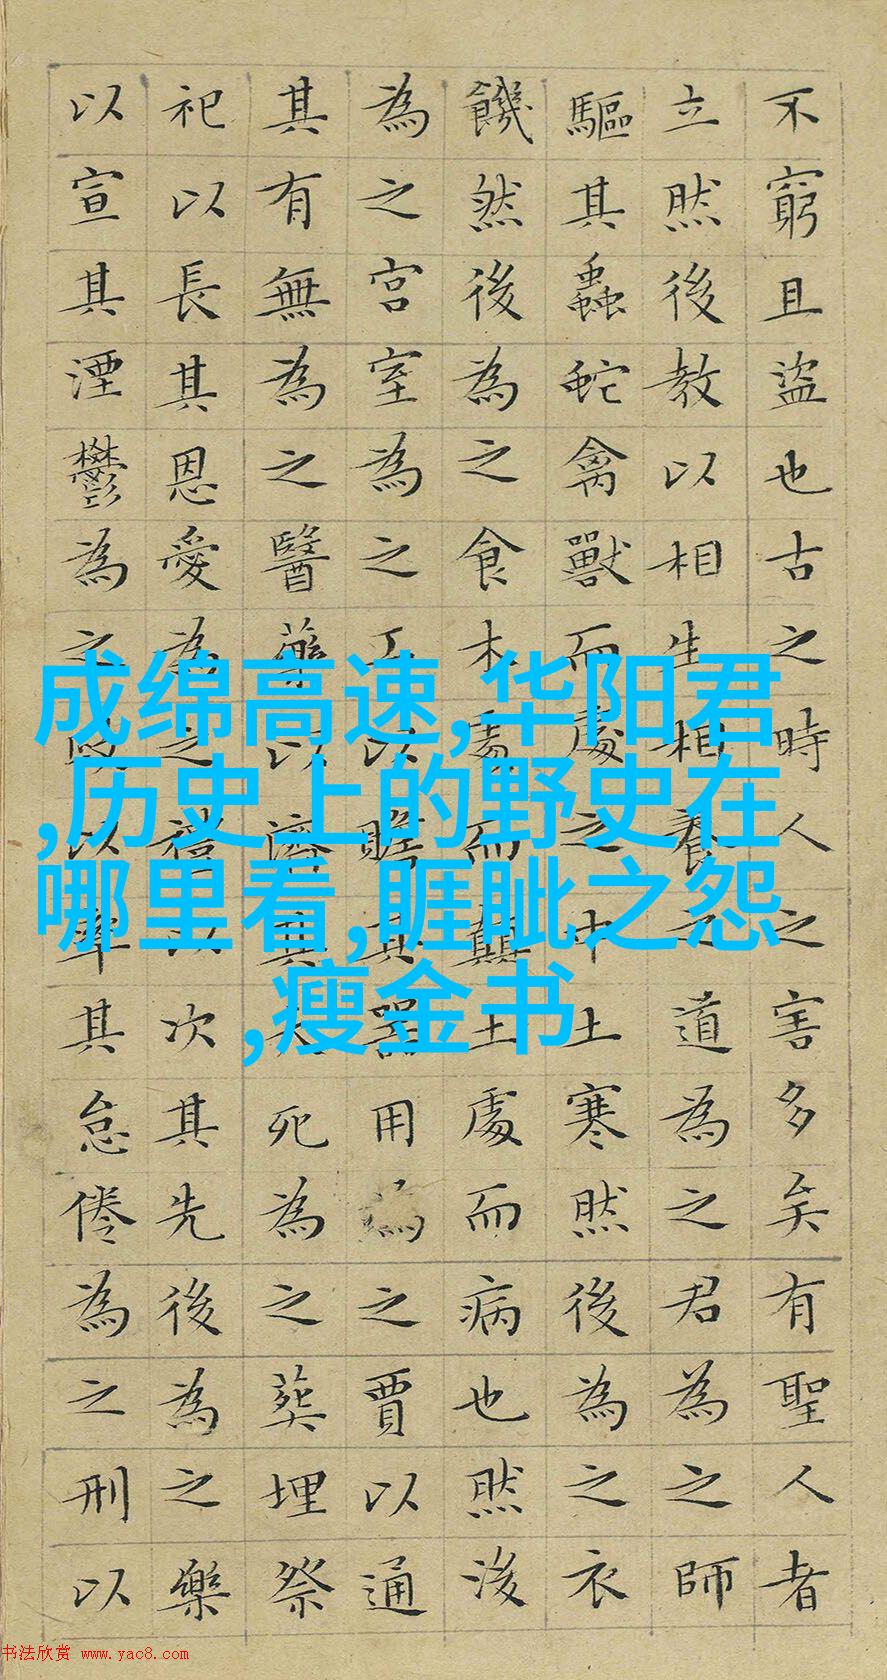 不窮且盜也古之時人之害多矣有聖人者
立然後教以相生相養之道為之君為之師
驅其蟲蛇禽獸而處之中土寒然後為之衣
饑然後為之食木處而顛土處而病也然後
為之宮室為之工以贍其器用為之賈以通
其有無為之醫藥以濟其夭死為之葬埋祭
祀以長其恩愛為之禮以次其先後為之樂
以宣其湮鬱為之政以率其怠倦為之刑以
成绵高速,华阳君
,历史上的野史在
哪里看,睚眦之怨
,瘦金书
书法欣赏 www.yac8.com